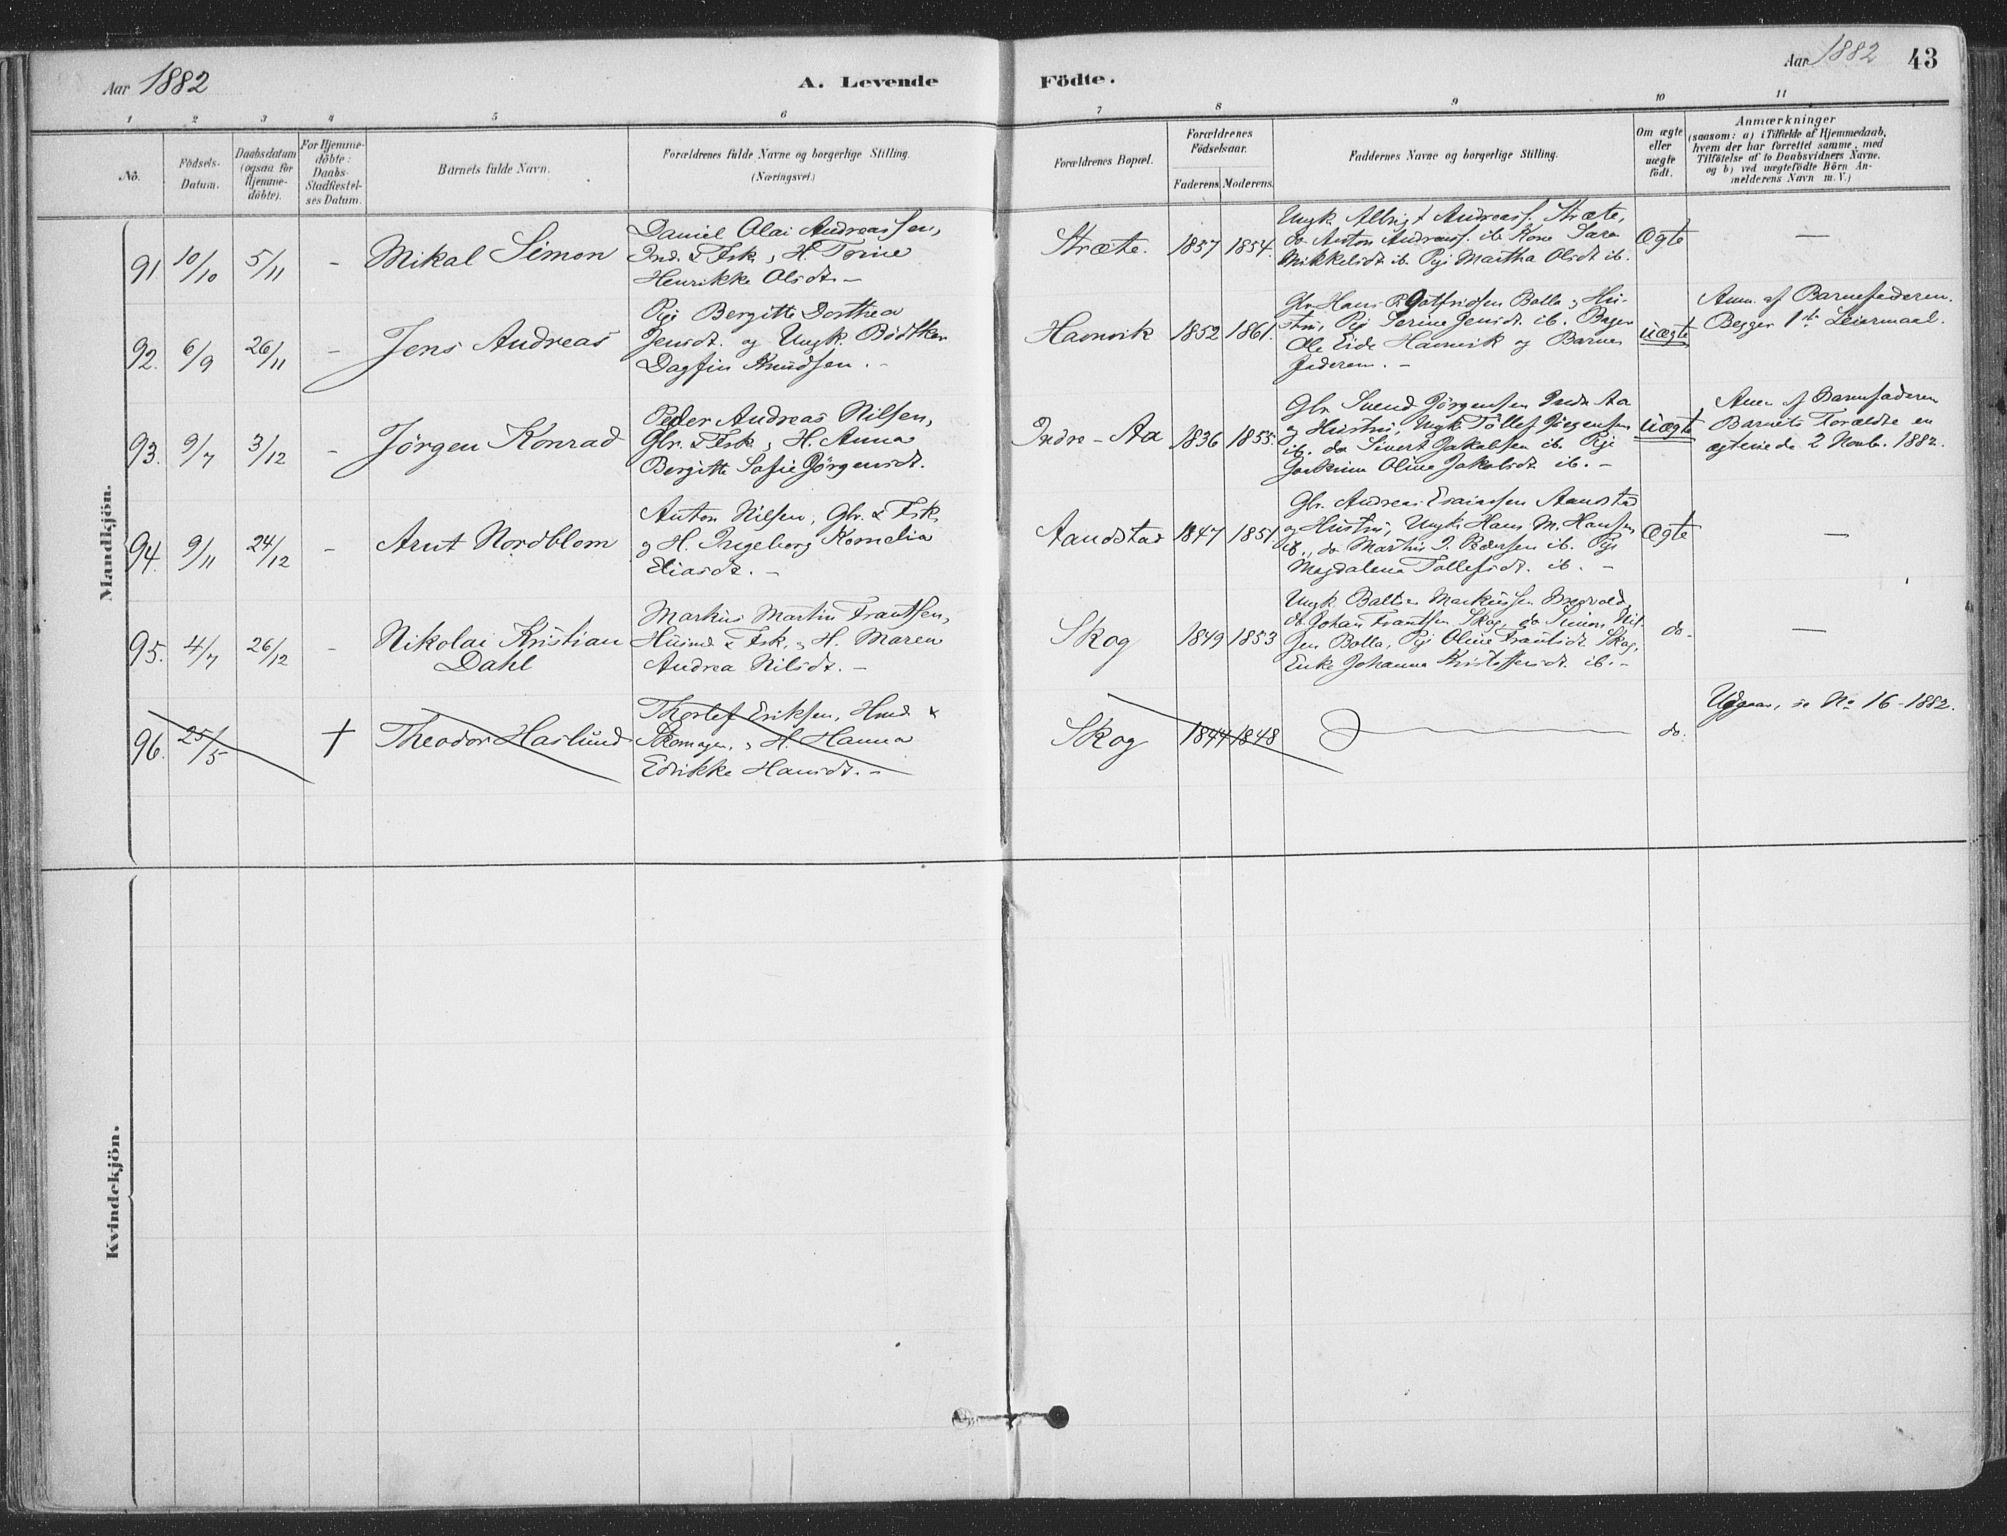 Aar 1882
A. Levende
Födte.
Aar 1882
43
1 2 3 4 5 6 7 8 9 10 11
No.
Födsels-
Datum.
Daabsdatum
(ogsaa for
Hjemme-
döbte).
For Hjemme-
döbte:
Daabs-
Stadfæstel-
ses Datum.
Barnets fulde Navn.
Forældrenes fulde Navne og borgerlige Stilling.
(Næringsvei.)
Forældrenes Bopæl.
Forældrenes
Födselsaar.
Faderens. Moderens.
Faddernes Navne og borgerlige Stilling.
Om ægte
eller
uægte
födt.
Anmærkninger
(saasom: a) i Tilfælde af Hjemmedaab,
hvem der har forrettet samme, med
Tilföielse af to Daabsvidners Navne.
og b) ved uægtefödte Börn An-
melderens Navn m. V.)
Mandkjön.
91. 10/10 5/11 -
Mikal Simon
Daniel Olai Andreassen,
Ind. & Fsk, H. Trine
Henrikke Olsdt. -
Stræte. 1857 1854.
Ungk. Albrigt Andreass. Stræte,
do Anton Andreass. ib. Kone Sara
Mikkelsdt. ib. Pige Martha Olsdt ib.
Ægte
—
92. 6/9 26/11 -
Jens Andreas
Pige Bergitte Dorthea
Jensdt. og Ungk. Bödtker
Dagfin Knudsen. -
Havnvik 1852 1861.
Gbr. Hans P. Gotfridsen Bolla & Hu-
stru, Pige Serine Jensdt. ib. Bager
Ole Eide Havnvik og Barne
faderen. -
uægte
Anm. af Barnefaderen.
Begges 1ste Leiermaal.
93. 9/7 3/12 -
Jörgen Konrad
Peder Andreas Nilsen,
Gbr. & Fsk, H. Anna
Bergitte Sofie Jörgensdt.
Indre-Aa 1836 1855.
Gbr. Svend Jörgensen Indr Aa
& Hustru, Ungk. Tollef Jörgensen
ib. do Sivert Jakobsen ib. Pige
Oline Jakobsdt. ib. -
uægte
Anm. af Barnefaderen
Barnets Forældre
ægteviede 2 Novb. 1882.
94. 9/11 24/12 -
Arnt Nordblom
Anton Nilsen, Gbr. & Fsk,
& H. Ingeborg Kornelia
Eliasdt. -
Aandstad 1847 1851.
Gbr. Andreas Esaiassen Aandstad
og Hustru, Ungk. Hans M. Hansen
ib., do Martin J. Pedersen ib. Pige
Magdalena Tollefsdt. ib. -
Ægte
—
95. 4/7 26/12 -
Nikolai Kristian
Dahl
Markus Martin Frantsen,
Husmd & Fsk, & H. Maren
Andrea Nilsdt. -
Skog 1849 1853
Ungk. Baltser Markussen Breivold
do Johan Frantsen Skog, do Simon Nil-
sen Bolla, Pige Oline Frantsdt. Skog,
Enke Johanna Kristoffersdt. ib. -
do.
—
96. 25/5 +
Theodor Haslund
Thorlef Eriksen, Hmd &
Skomager, & H. Hanna
Edrikke Hansdt. -
Skog 1844 1848
do.
Udgaar, se No 16 - 1882.
Kvindekjön.